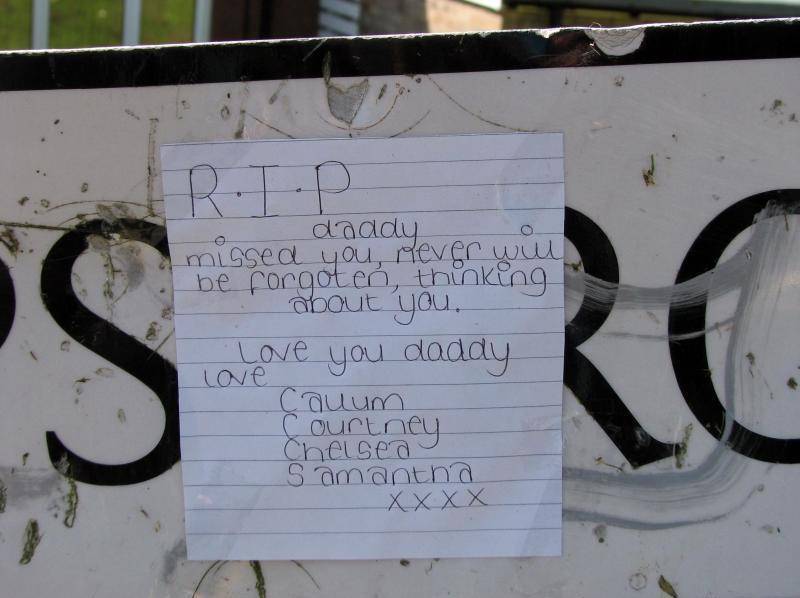 R.I.P
daddy
missed you, never will
be forgoten, thinking
about you.
Love you daddy
Love
Callum
Courtney
Chelsea
Samantha
xxxx
S RO